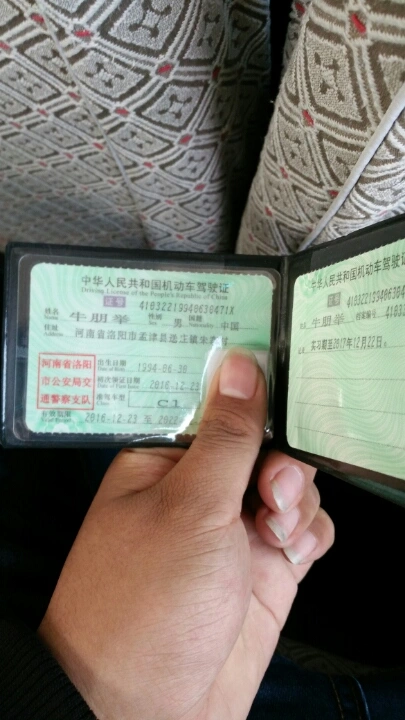 中华人民共和国机动车驾驶证
Driving License of the People's Republic of China
证号
姓名 牛朋举 性别 男 国籍 中国
Name Sex Nationality
住址 河南省洛阳市孟津县送庄镇朱
Address
河南省洛阳
市公安局交
通警察支队
出生日期 1994-06-30
Date of Birth
初次领证日期 2016-12-23
准驾车型 C1
Class
有效期限 2016-12-23 至 2022
Valid Period
中华人民共和国机动车驾驶证
证号
姓名 牛朋举 档案编号
记录 实习期至2017年12月22日。